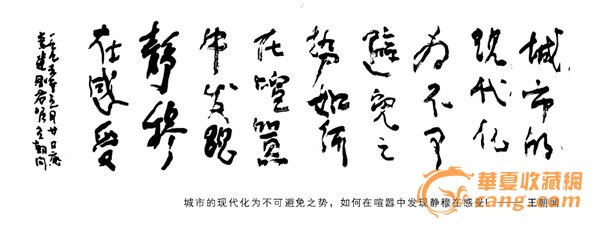 城市的
现代化
为不可
避免之
势如何
在喧嚣
中发现
静穆
在感受
王朝闻
城市的现代化为不可避免之势，如何在喧嚣中发现静穆在感受！——王朝闻
華夏收藏網
cang.com